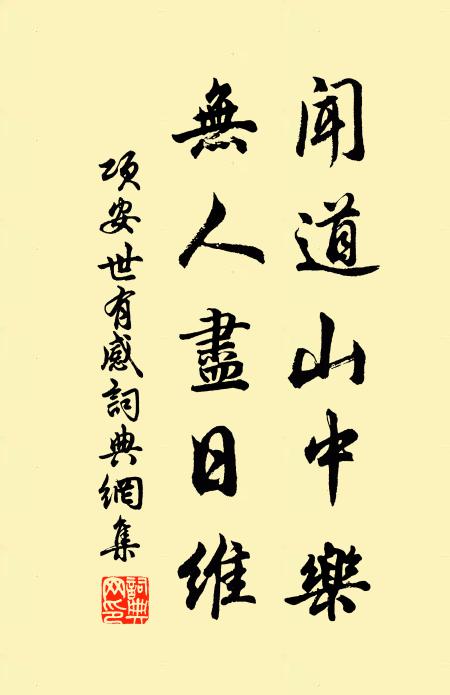 聞道山中樂
無人盡日維
項安世有感詞典網集
詞典網印